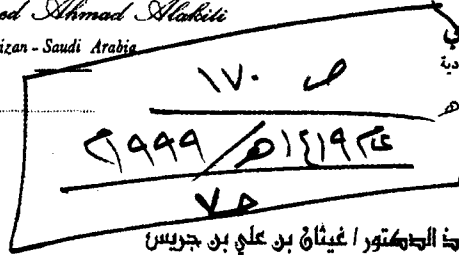 ed Ahmad Alakiti
izan - Saudi Arabia
ص ١٧٠
عام ١٤١٩هـ / ١٩٩٩م
ص ٧
ذ الدكتور / غيثان بن علي بن جريس